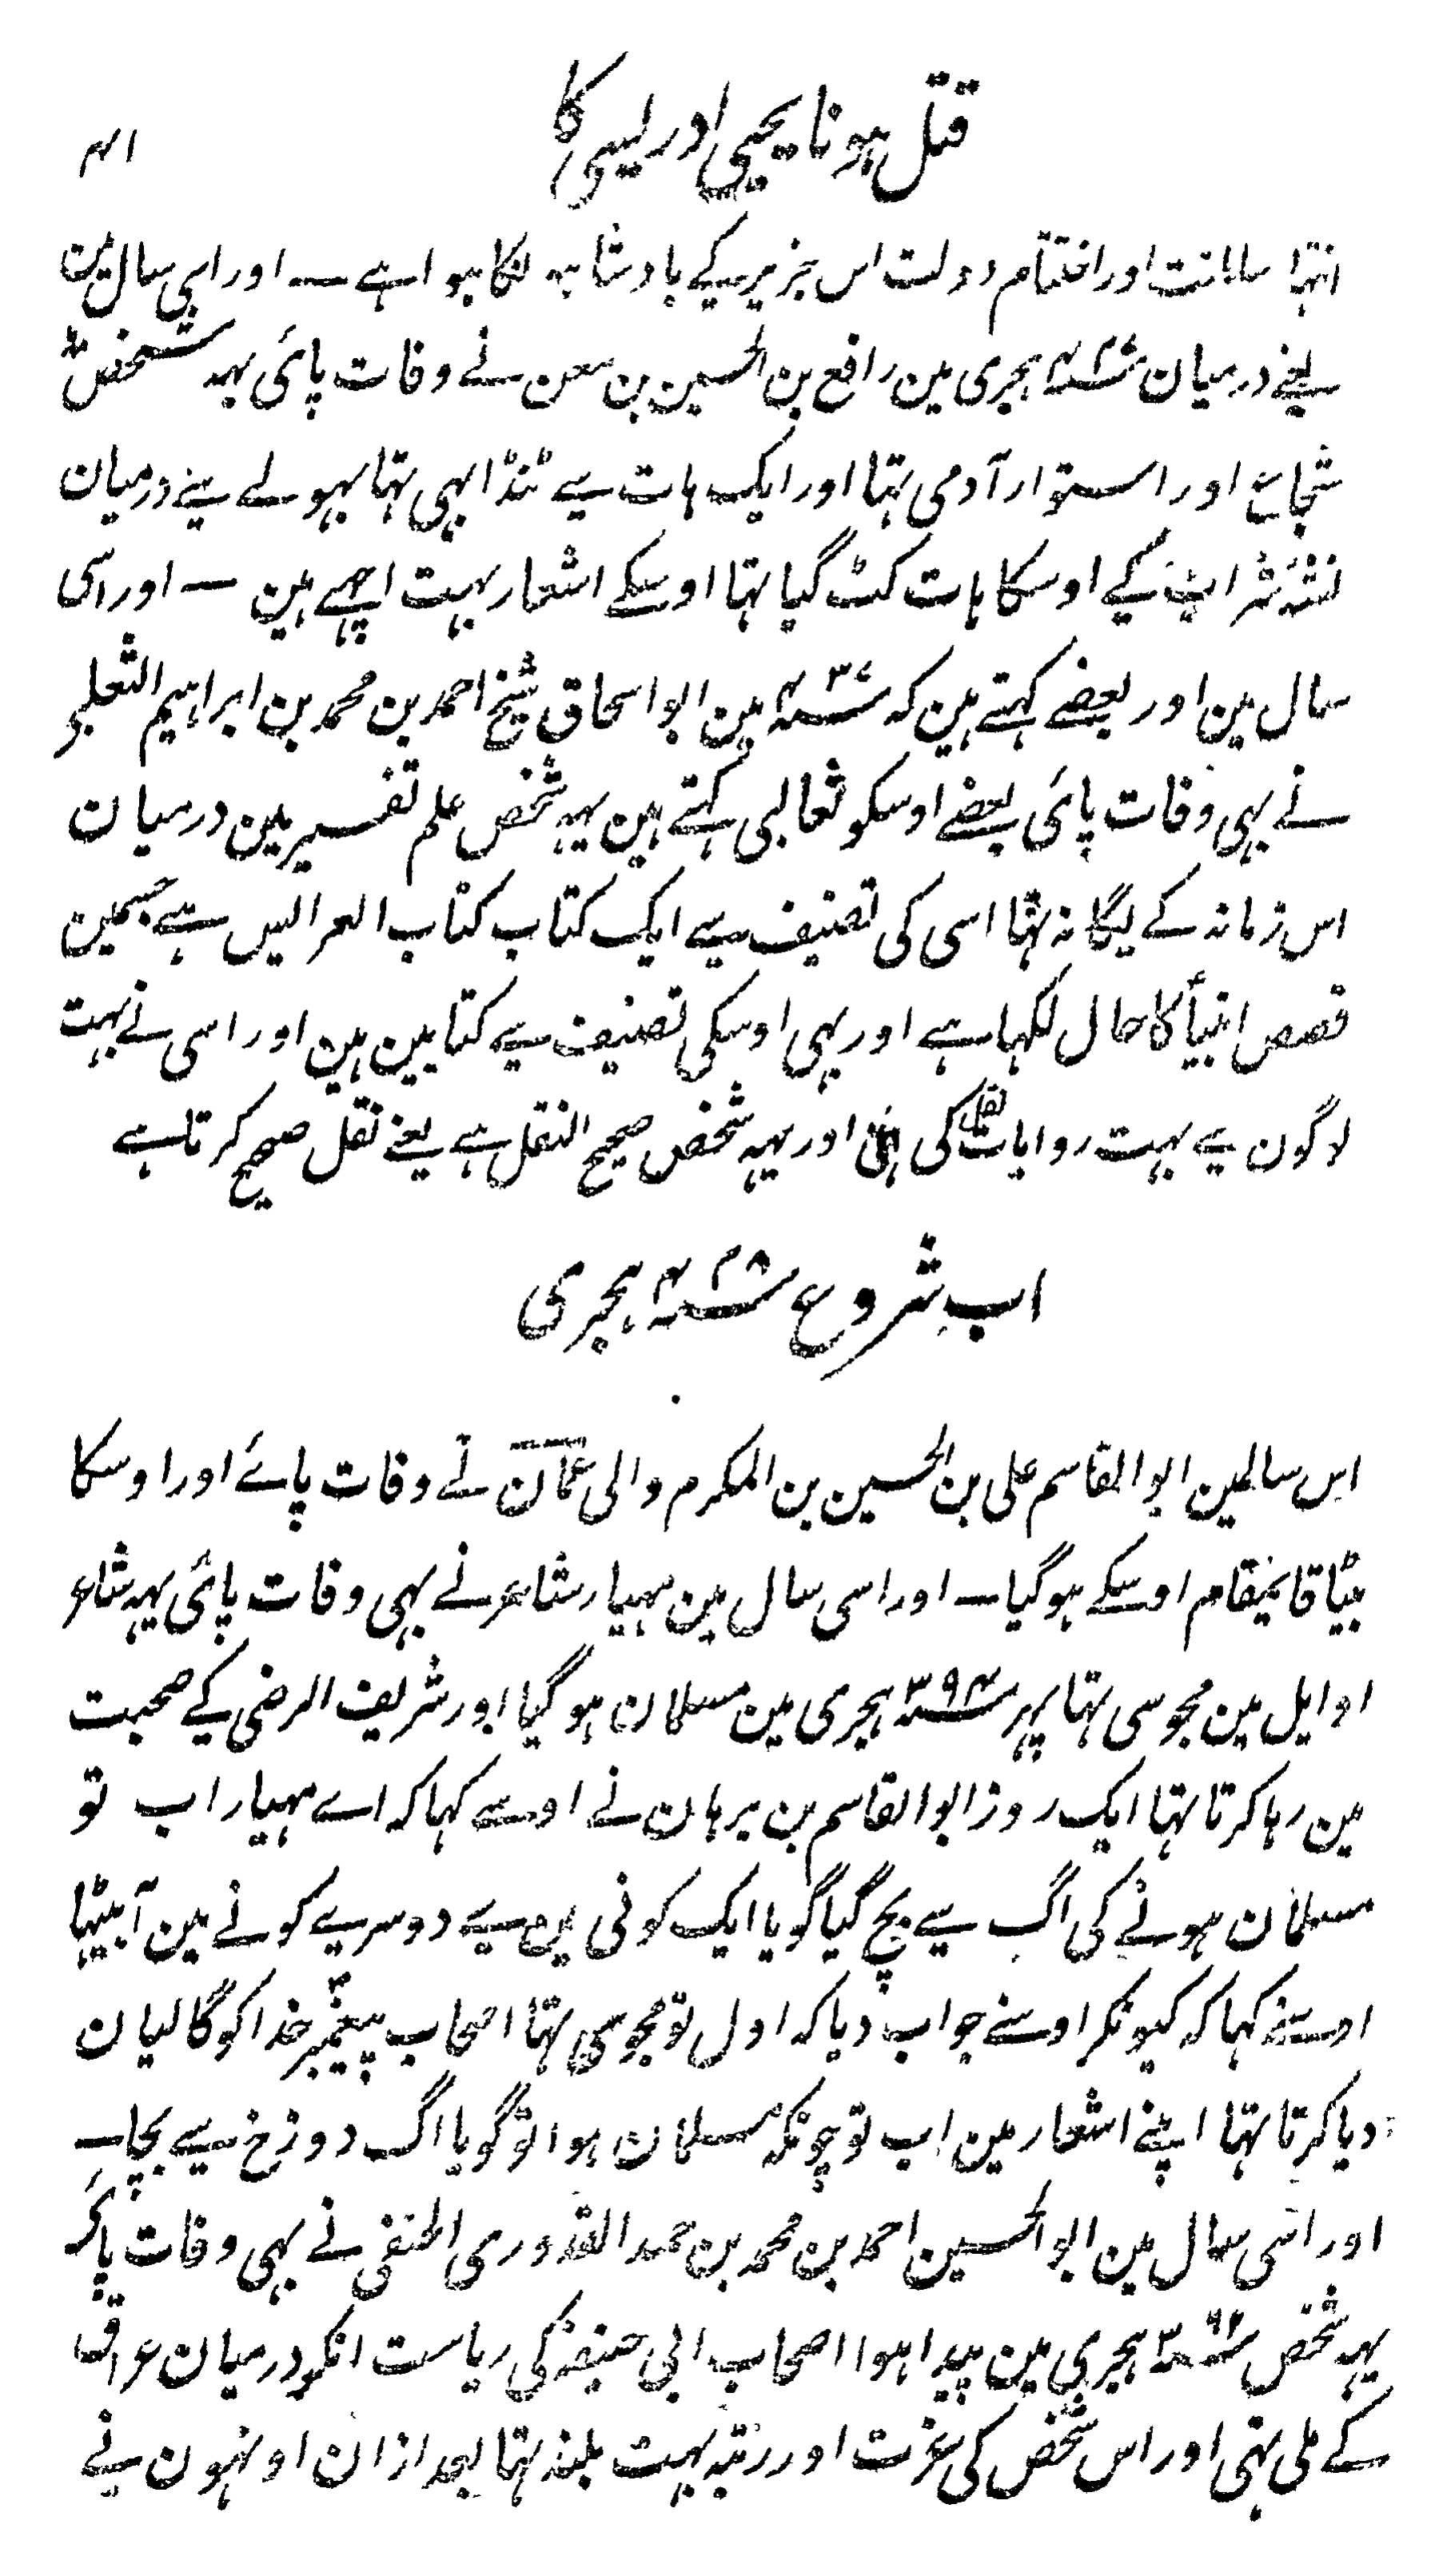 قتل ہونا یحیی ادریسی کا
۴۱
انتہا سلطنت اور اختتام دولت اس جزیریکے بادشاہہ لنکا ہوا ہے ــ اور اسی سال مین
یعنے درمیان ۴۲۷ ہجری مین رافع بن الحسین بن معن نے وفات پائی یہہ شخص بڑا
شجاع اور استوار آدمی تہا اور ایک ہات سے ٹنڈا بہی تہا بہولے سے درمیان
نشہ شراب کے اوسکا ہات کٹ گیا تہا اوسکے اشعار بہت اچہے ہین ــ اور اسی
سال مین اور بعضے کہتے ہین کہ ۴۳۷ مین ابو اسحاق شیخ احمد بن محمد بن ابراہیم الثعلبی
نے بہی وفات پائی بعضے اوسکو ثعالبی کہتے ہین یہہ شخص علم تفسیر مین درمیان
اس زمانہ کے یگانہ تہا اسی کی تصنیف سے ایک کتاب کتاب العرالیس ہے جسمین
قصص انبیأ کا حال لکہا ہے اور بہی اوسکی تصنیف سے کتابین ہین اور اسی نے بہت
لاگون سے بہت روایات نقل کی ہین اور یہہ شخص صحیح النقل ہے یعنے نقل صحیح کرتا ہے
اب شروع ۴۲۸ ہجری
اس سالمین ابو القاسم علی بن الحسین بن المکرم والی عمان نے وفات پائے اور اوسکا
بیٹا قایمقام اوسکے ہوگیا ــ اور اسی سال مین مہیار شاعر نے بہی وفات پائی یہہ شاعر
اوایل مین مجوسی تہا پہر ۳۹۴ ہجری مین مسلمان ہو گیا اور شریف الرضی کے صحبت
مین رہا کرتا تہا ایک روز ابو القاسم بن برہان نے اوسے کہا کہ اے مہیار اب تو
مسلمان ہونے کی اگ سے بچ گیا گویا ایک کونی مین سے دوسرے کونے مین آبیٹہا
اوسنے کہا کہ کیونکر اوسنے جواب دیا کہ اول تو مجوسی تہا اصحاب پیغمبر خدا کو گالیان
دیا کرتا تہا اپنے اشعار مین اب تو چونکہ مسلمان ہوا تو گویا اگ دوزخ سے بچا ــ
اور اسی سال مین ابو الحسین احمد بن محمد بن حمد القدوری الحنفی نے بہی وفات پائی
یہہ شخص ۳۶۲ ہجری مین پیدا ہوا اصحاب ابی حنیفہ کی ریاست انکو درمیان عراق
کے ملی تہی اور اس شخص کی عزت اور رتبہ بہت بلند تہا بعد ازان اونہون نے